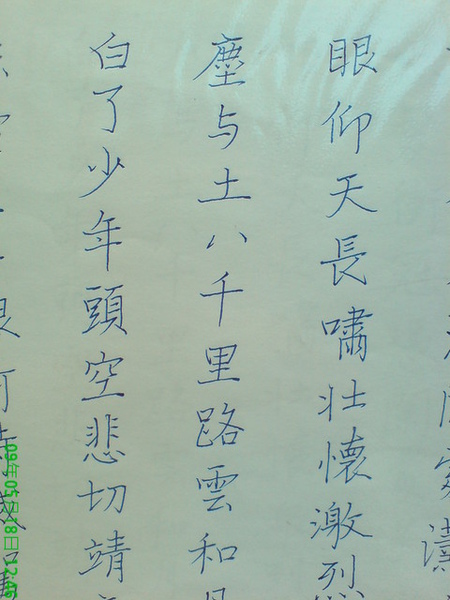 眼仰天長嘯壮懷激烈
塵与土八千里路雲和
白了少年頭空悲切靖
09年05月18日12:46